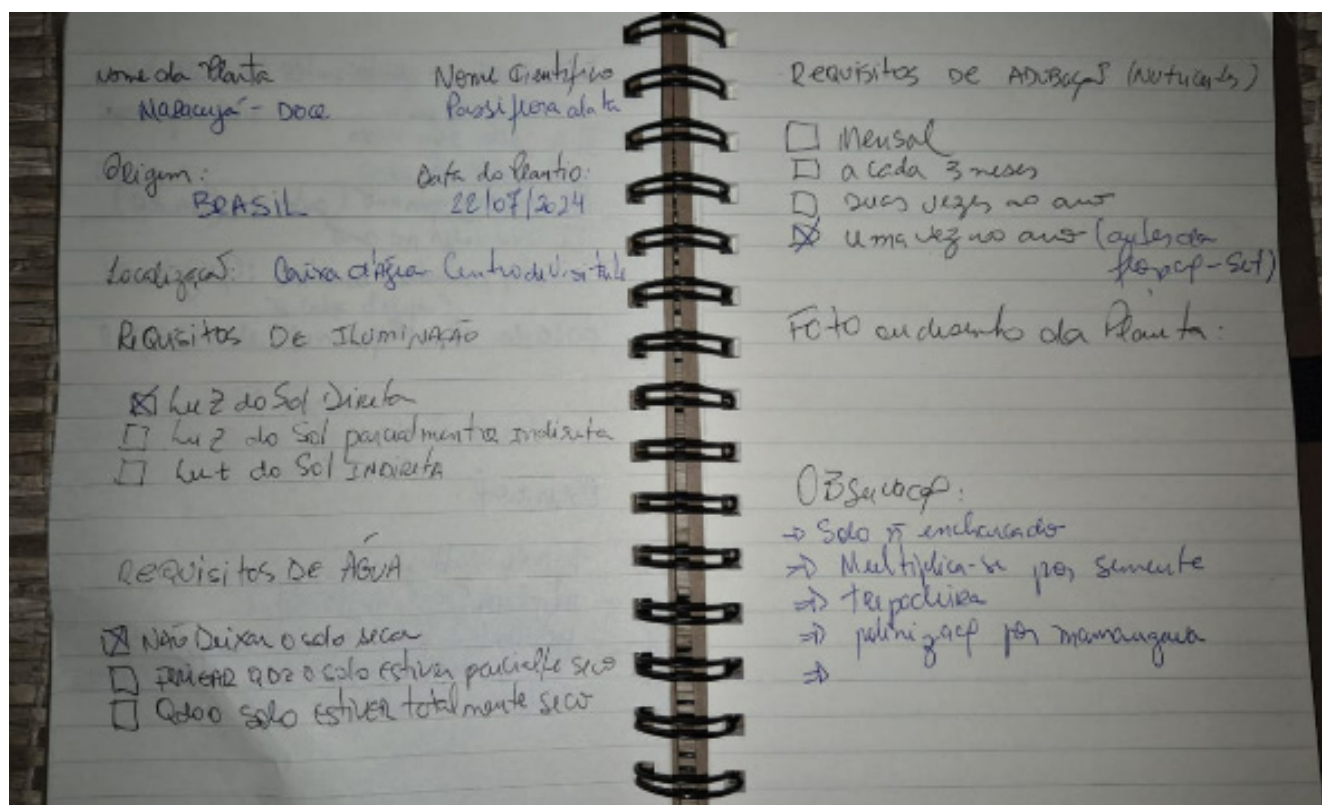 Nome da Planta Nome Científico
Maracujá - Doce Passiflora alata
Origem: Data do Plantio:
BRASIL 22/07/2024
Localização: Caixa d'Água Centro de Visitante
Requisitos De Iluminação
☒ Luz do Sol Direta
☐ Luz do Sol parcialmente Indireta
☐ Luz do Sol INDIRETA
Requisitos De ÁGUA
☒ Não Deixar o solo secar
☐ qdo o solo estiver parcial/te seco
☐ Qdo o solo estiver totalmente seco
Requisitos De Adubação (Nutrientes)
☐ Mensal
☐ a cada 3 meses
☐ Duas vezes ao ano
☒ uma vez no ano (antes da
floração - Set)
Foto ou desenho da Planta:
Observação:
→ Solo ñ encharcado
⇒ Multiplica-se por semente
⇒ trepadeira
⇒ polinização por mamangava
⇒